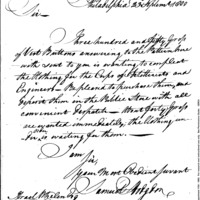 Philadelphia 23 Septemr 1800
Sir
Three hundred and Fifty Gross
of Vest Buttons answering to the Pattern here
with sent to you is wanting to compleat
the Clothing for the Corps of Artillerists and
Engineers - Be pleased to purchase them, and
deposit them in the Public Store with all
convenient dispatch. About Forty Gross
are wanted immediately, the Clothing
now is waiting for them
I am
Sir
Your Most Obedient Servant
Samuel Hodgdon
Israel Whelen Esq